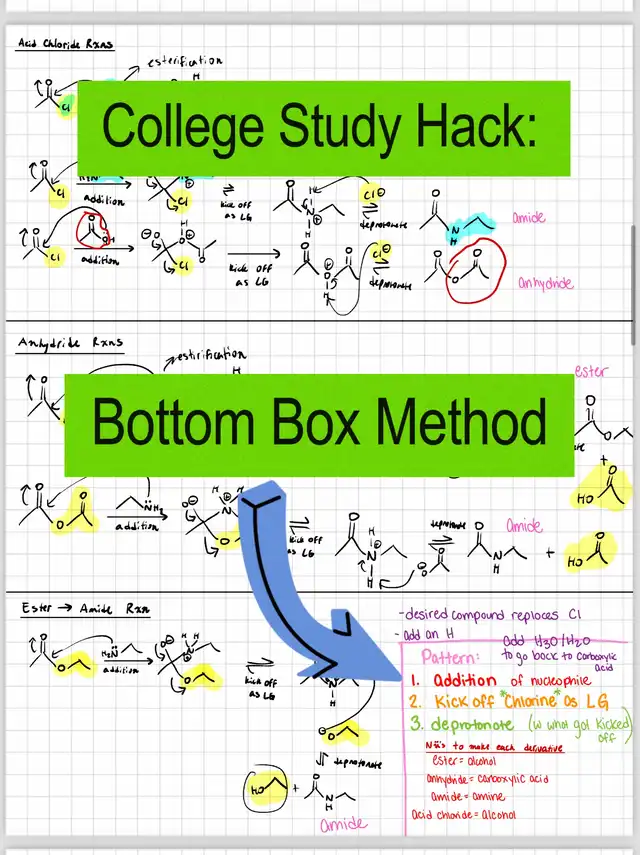 Acid Chloride Rxns
esterification
H
O
Cl
College Study Hack:
addition
Cl
Cl
kick off
as LG
H
N
Cl
deprotonate
O
N
H
amide
O
Cl
O
O H
addition
O
H
O
O
Cl
kick off
as LG
O
O
H
Cl
deprotonate
O
O
O
anhydride
Anhydride Rxns
estirification
H
O
ester
Bottom Box Method
O
O
+
O
HO
O
O
O
NH2
addition
O
H H
N
O
kick off
as LG
O
H
N
H
deprotonate
O
O
Amide
O
N
H
+
O
HO
Ester → Amide Rxn
O
O
H2N
addition
O
H H
N
O
kick off
as LG
N
H
O
deprotonate
HO
+
O
N
H
amide
-desired compound replaces Cl
- add an H
add H3O/H2O
to go back to carboxylic
acid
Pattern:
1. addition of nucleophile
2. Kick off "Chlorine" as LG
3. deprotonate (w what got kicked
off
Nu:'s to make each derivative
ester = alcohol
anhydride = carboxylic acid
amide = amine
acid chloride = alcohol